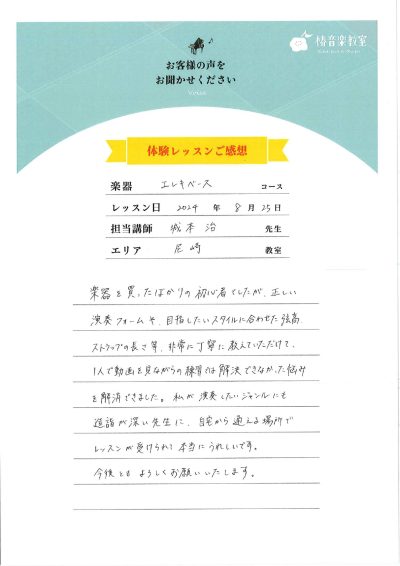 椿音楽教室
お客様の声を
お聞かせください
Voice
体験レッスンご感想
楽器 エレキベース コース
レッスン日 2024 年 8 月 25 日
担当講師 城本 治 先生
エリア 尼崎 教室
楽器を買ったばかりの初心者でしたが、正しい
演奏フォームや、目指したいスタイルに合わせた弦高、
ストラップの長さ等、非常に丁寧に教えていただけて、
1人で動画を見ながらの練習では解決できなかった悩み
を解消できました。私が演奏したいジャンルにも
造詣が深い先生に、自宅から通える場所で
レッスンが受けられて本当にうれしいです。
今後ともよろしくお願いいたします。